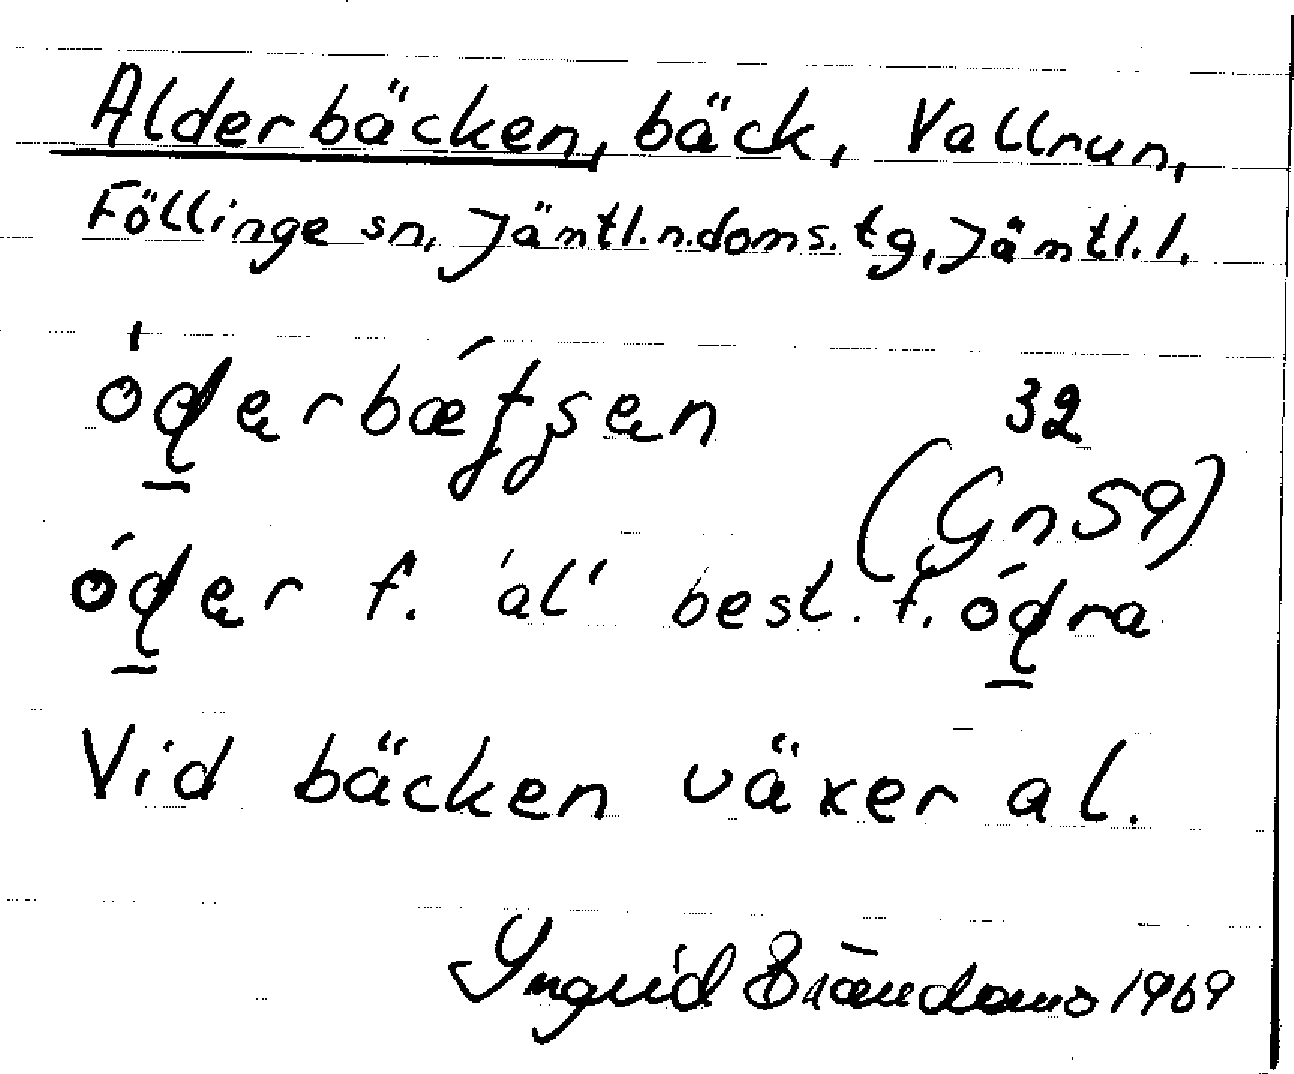 Alderbäcken, bäck, Vallrun,
Föllinge sn, Jäntl.n.doms.tg, Jämtl.l.
óḍerbæ´tʃen 32
(Gn 59)
óḍer f. 'al' best. f. óḍra
Vid bäcken växer al.
Ingrid Brändoms 1969